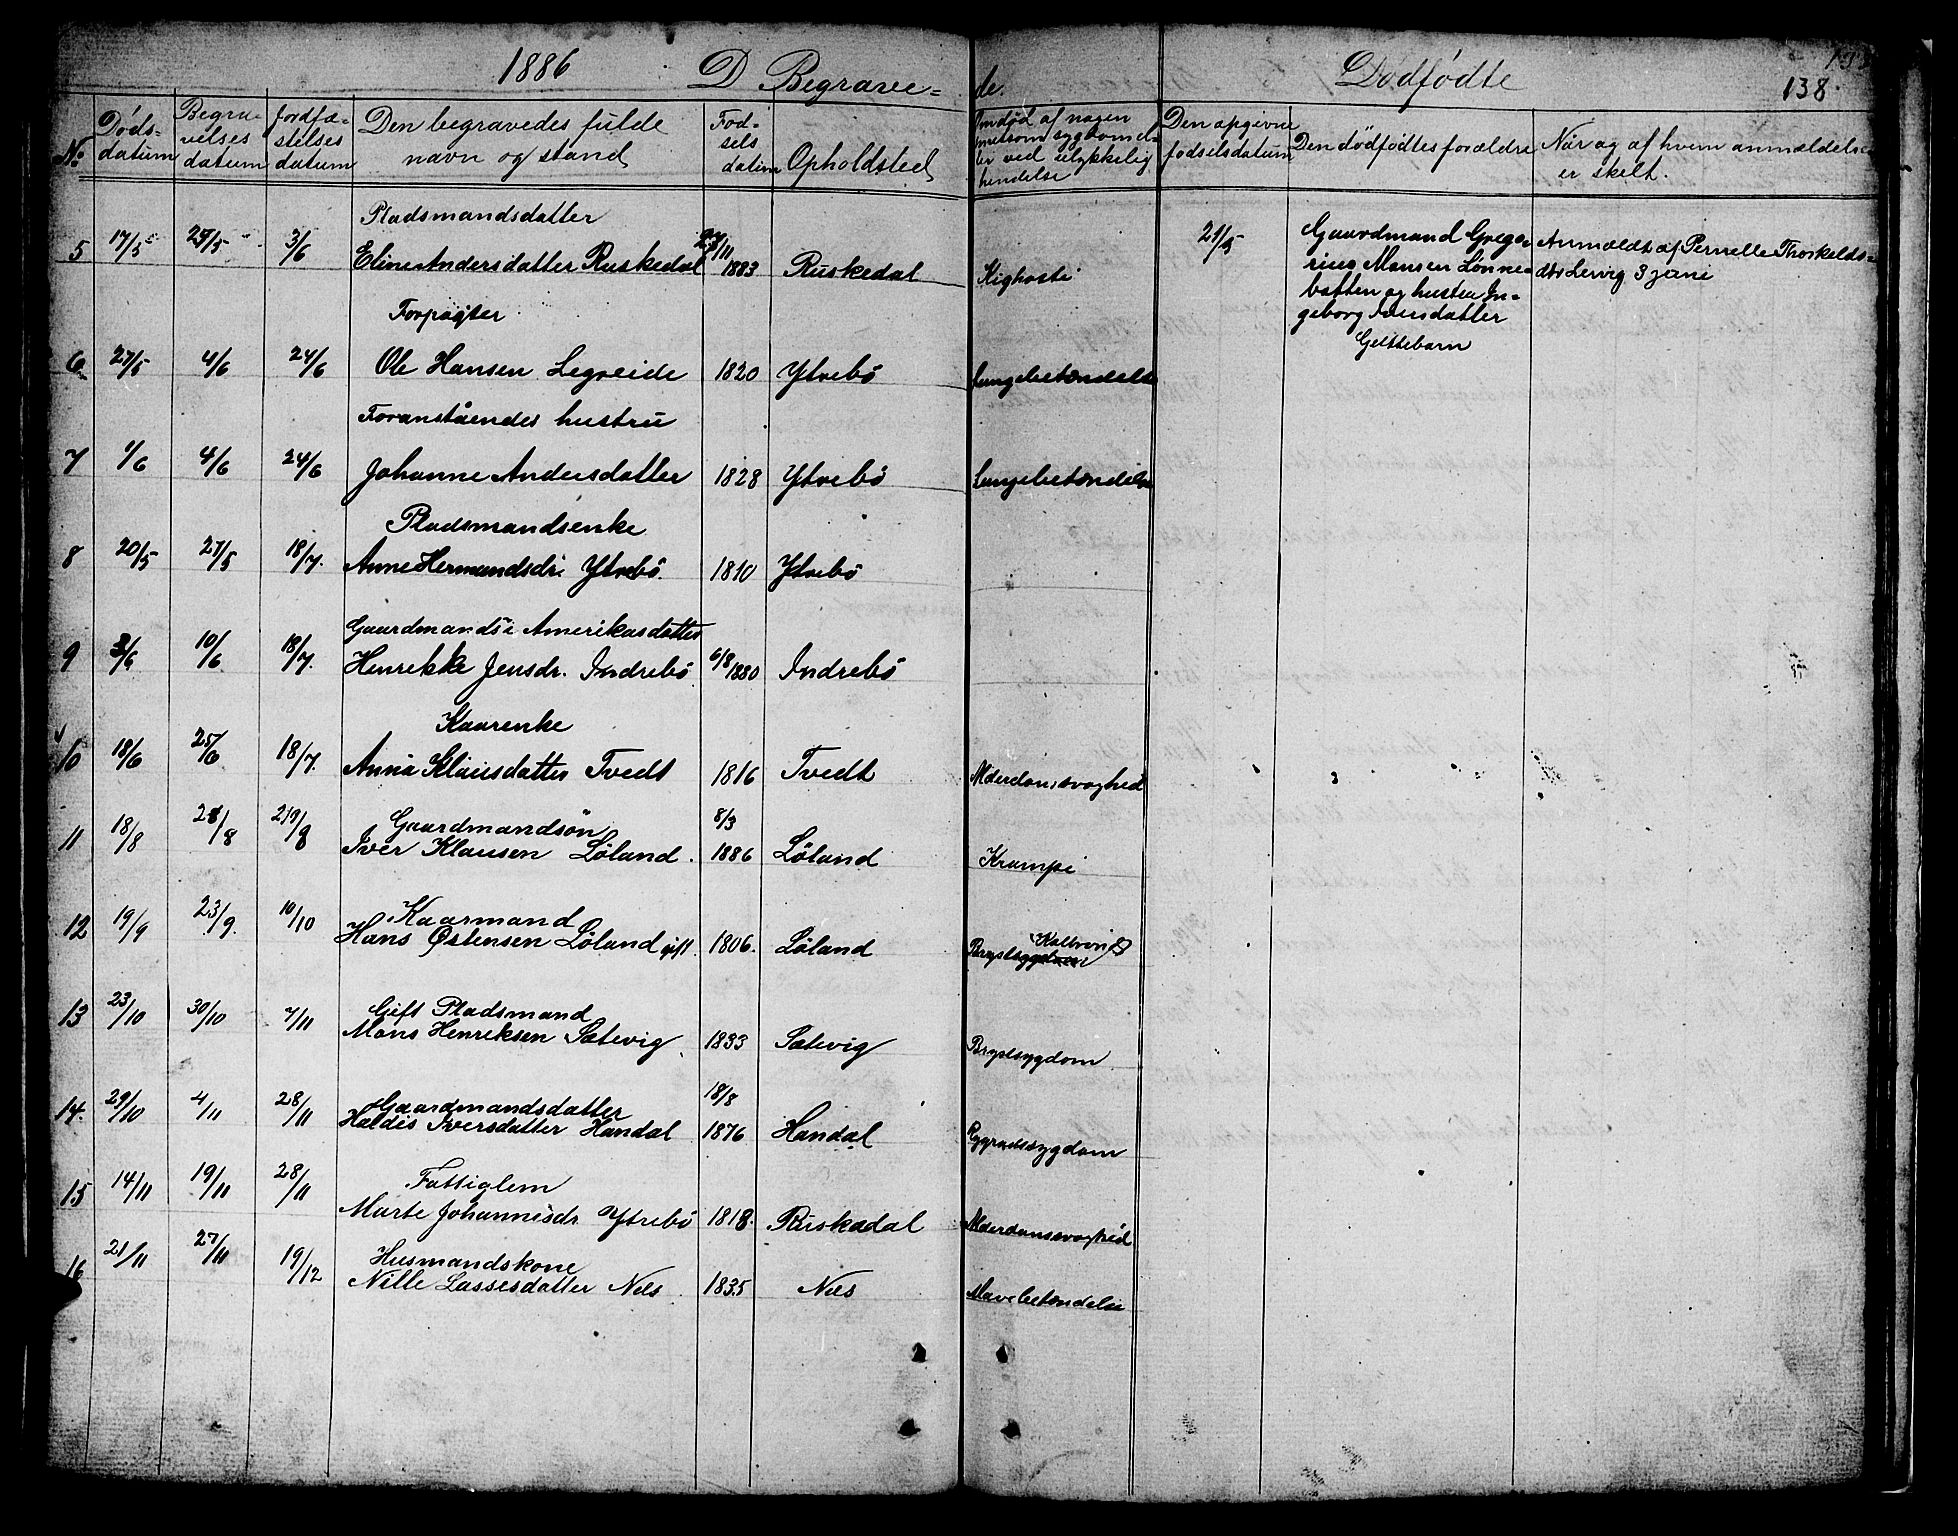 1886 D Begravede. Dødfødte 138.
No Døds-datum Begravelses datum Jordfæstelses datum Den begravedes fulde navn og stand Fødsels datum Opholdsted Om død af nogen smitsom sygdom eller ved ulykkelig hendelse Den opgivne fødselsdatum Den dødfødtes forældre Når og af hvem anmældelse er skelt.
Pladsmandsdatter
5 17/5 29/5 3/6 Eline Andersdatter Ruskedal 1883 Ruskedal Kighoste
21/5 Gaardmand Grego-
rius Monsen Lønne-
botten og hustru In-
geborg Iversdatter
Guttebarn
Anmældt af Pernelle Thorkelds-
dtr Lervig 3 juni
Forpagter
6 27/5 4/6 24/6 Ole Hansen Legreide 1820 Ytrebø Lungebetændelse
Foranståendes hustru
7 1/6 4/6 24/6 Johanne Andersdatter 1828 Ytrebø Lungebetændelse
Pladsmandsenke
8 20/5 27/5 18/7. Anne Hermundsdr. Ytrebø. 1810 Ytrebø
Gaardmands i Amerikas datter
9 3/6 10/6 18/7. Henrikke Jensdr. Indrebø 6/8 1880 Indrebø
Kaarenke
10 18/6 25/6 18/7. Anna Klausdatter Tvedt 1816 Tvedt Alderdomssvaghed
Gaardmandsøn
11 18/8 28/8 29/8 Iver Klausen Løland. 8/3 1886 Løland Krampe
Kaarmand
12 19/9 23/9. 10/10 Hans Østensen Løland gift. 1806. Løland Koldbrand
Gift Pladsmand
13 23/10 30/10 7/11 Mons Henriksen Sætevig. 1833 Sætevig Brystsygdom
Gaardmandsdatter
14. 29/10 4/11 28/11 Haldis Iversdatter Handal 18/8 1876 Handal Rygradssygdom
Fattiglem
15 14/11 19/11 28/11 Marte Johannisdr Ytrebø 1818. Ruskedal Alderdomssvaghed
Husmandskone
16 21/11 27/11 19/12 Nille Lassesdatter Næs. 1835 Næs Mavebetændelse